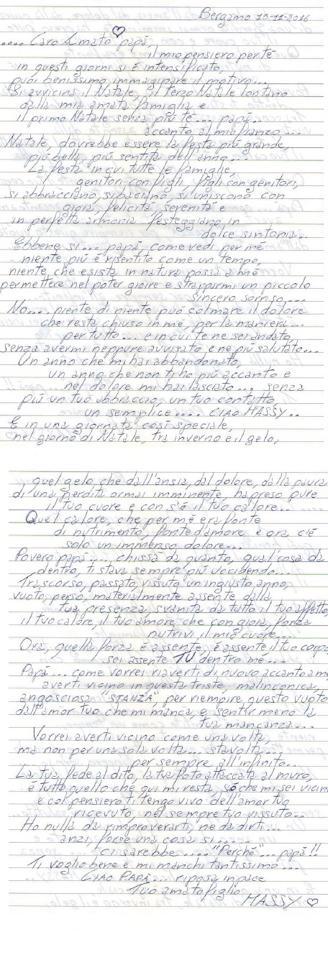 Bergamo 15-12-2016
.... Caro Amato papà,
il mio pensiero per te
in questi giorni si è intensificato,
puoi benissimo immaginare il motivo...
Si avvicina il Natale, il terzo Natale lontano
dalla mia amata famiglia e
il primo Natale senza più te... papà..
accanto al mio fianco...
Natale, dovrebbe essere la festa più grande,
più bella, più sentita dell'anno...
La festa in cui tutte le famiglie,
genitori con figli, figli con genitori,
si abbracciano, si baciano, si uniscono con
gioia, felicità, serenità e
in perfetta armonia festeggiano in
dolce sintonia..
Ebbene si... papà, come vedi per me
niente più è risentito come un tempo,
niente, che esista in natura possa a me
permettere nel poter gioire e strapparmi un piccolo
sincero sorriso,...
No... niente di niente può colmare il dolore
che resta chiuso in me, per la maniera...
per tutto... e in cui te ne sei andato,
senza avermi neppure avvisato e ne più salutato...
Un anno che mi hai abbandonato,
un anno che non ti ho più accanto e
nel dolore mi hai lasciato..., senza
più un tuo abbraccio, un tuo contatto,
un semplice.... CIAO HASSY..
E in una giornata così speciale,
nel giorno di Natale, tra inverno e il gelo,
, quel gelo, che dall'ansia, dal dolore, dalla paura
di una perdita ormai imminente, ha preso pure
il tuo cuore e con sé il tuo calore..
Quel calore, che per me era fonte
di nutrimento, fonte d'amore e ora c'è
solo un immenso dolore...
Povero papà.... chissà da quanto, qual cosa da
dentro, ti stava sempre più uccidendo...
Trascorso, passato, vissuto un ingiusto anno,
vuoto, perso, materialmente assente dalla
tua presenza, svanita da tutto il tuo affetto,
il tuo calore, il tuo amore, che con gioia, forza
nutrivi il mio cuore...
Ora, quella forza è assente, è assente il tuo corpo,
sei assente TU dentro me...
Papà... come vorrei riaverti di nuovo accanto a me,
averti vicino in questa triste, malinconica,
angosciosa "STANZA", per riempire questo vuoto
dall'amor tuo che mi manca, e sentir meno la
tua mancanza...
Vorrei averti vicino come una volta,
ma non per una sola volta... stavolta,...
per sempre all'infinito..
La tua, fede al dito, la tua foto attaccata al muro,
è tutto quello che qui mi resta, so che mi sei vicino
e col pensiero ti tengo vivo dell'amor tuo
ricevuto, nel sempre tuo vissuto...
Ho nulla da rimproverarti, ne da dirti...
anzi, forse una cosa si....
ci sarebbe.... "Perché"... papà!!
Ti voglio bene e mi manchi tantissimo...
CIAO PAPÀ... riposa in pace
Tuo amato figlio
HASSY